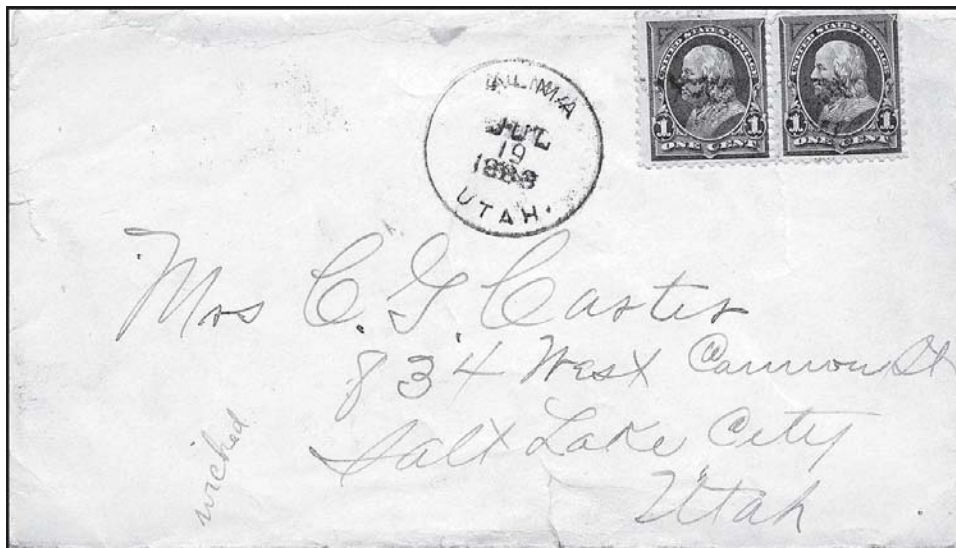 UTAH.
JUL
19
UNITED STATES POSTAGE
1 1
ONE CENT
UNITED STATES POSTAGE
1 1
ONE CENT
Mrs C. G. Carter
834 West Cannon St
Salt Lake City
Utah